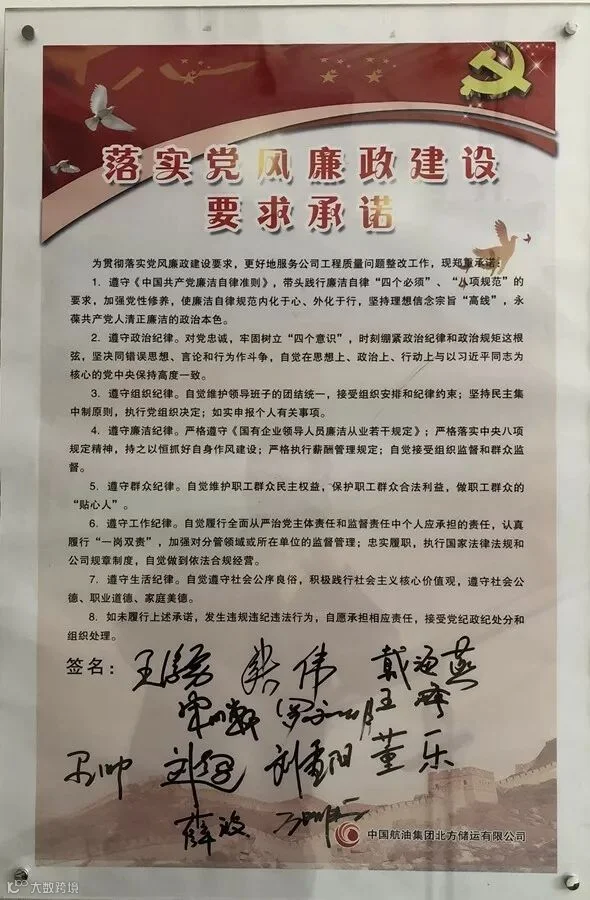 落实党风廉政建设
要求承诺
为贯彻落实党风廉政建设要求，更好地服务公司工程质量问题整改工作，现郑重承诺：
1．遵守《中国共产党廉洁自律准则》，带头践行廉洁自律“四个必须”、“八项规范”的
要求，加强党性修养，使廉洁自律规范内化于心、外化于行，坚持理想信念宗旨“高线”，永
葆共产党人清正廉洁的政治本色。
2．遵守政治纪律。对党忠诚，牢固树立“四个意识”，时刻绷紧政治纪律和政治规矩这根
弦，坚决同错误思想、言论和行为作斗争，自觉在思想上、政治上、行动上与以习近平同志为
核心的党中央保持高度一致。
3．遵守组织纪律。自觉维护领导班子的团结统一，接受组织安排和纪律约束；坚持民主集
中制原则，执行党组织决定；如实申报个人有关事项。
4．遵守廉洁纪律。严格遵守《国有企业领导人员廉洁从业若干规定》；严格落实中央八项
规定精神，持之以恒抓好自身作风建设；严格执行薪酬管理规定；自觉接受组织监督和群众监
督。
5．遵守群众纪律。自觉维护职工群众民主权益，保护职工群众合法利益，做职工群众的
“贴心人”。
6．遵守工作纪律。自觉履行全面从严治党主体责任和监督责任中个人应承担的责任，认真
履行“一岗双责”，加强对分管领域或所在单位的监督管理；忠实履职，执行国家法律法规和
公司规章制度，自觉做到依法合规经营。
7．遵守生活纪律。自觉遵守社会公序良俗，积极践行社会主义核心价值观，遵守社会公
德、职业道德、家庭美德。
8．如未履行上述承诺，发生违规违纪违法行为，自愿承担相应责任，接受党纪政纪处分和
组织处理。
签名：戴海燕
刘重阳 董乐
薛波
中国航油集团北方储运有限公司
大数跨境